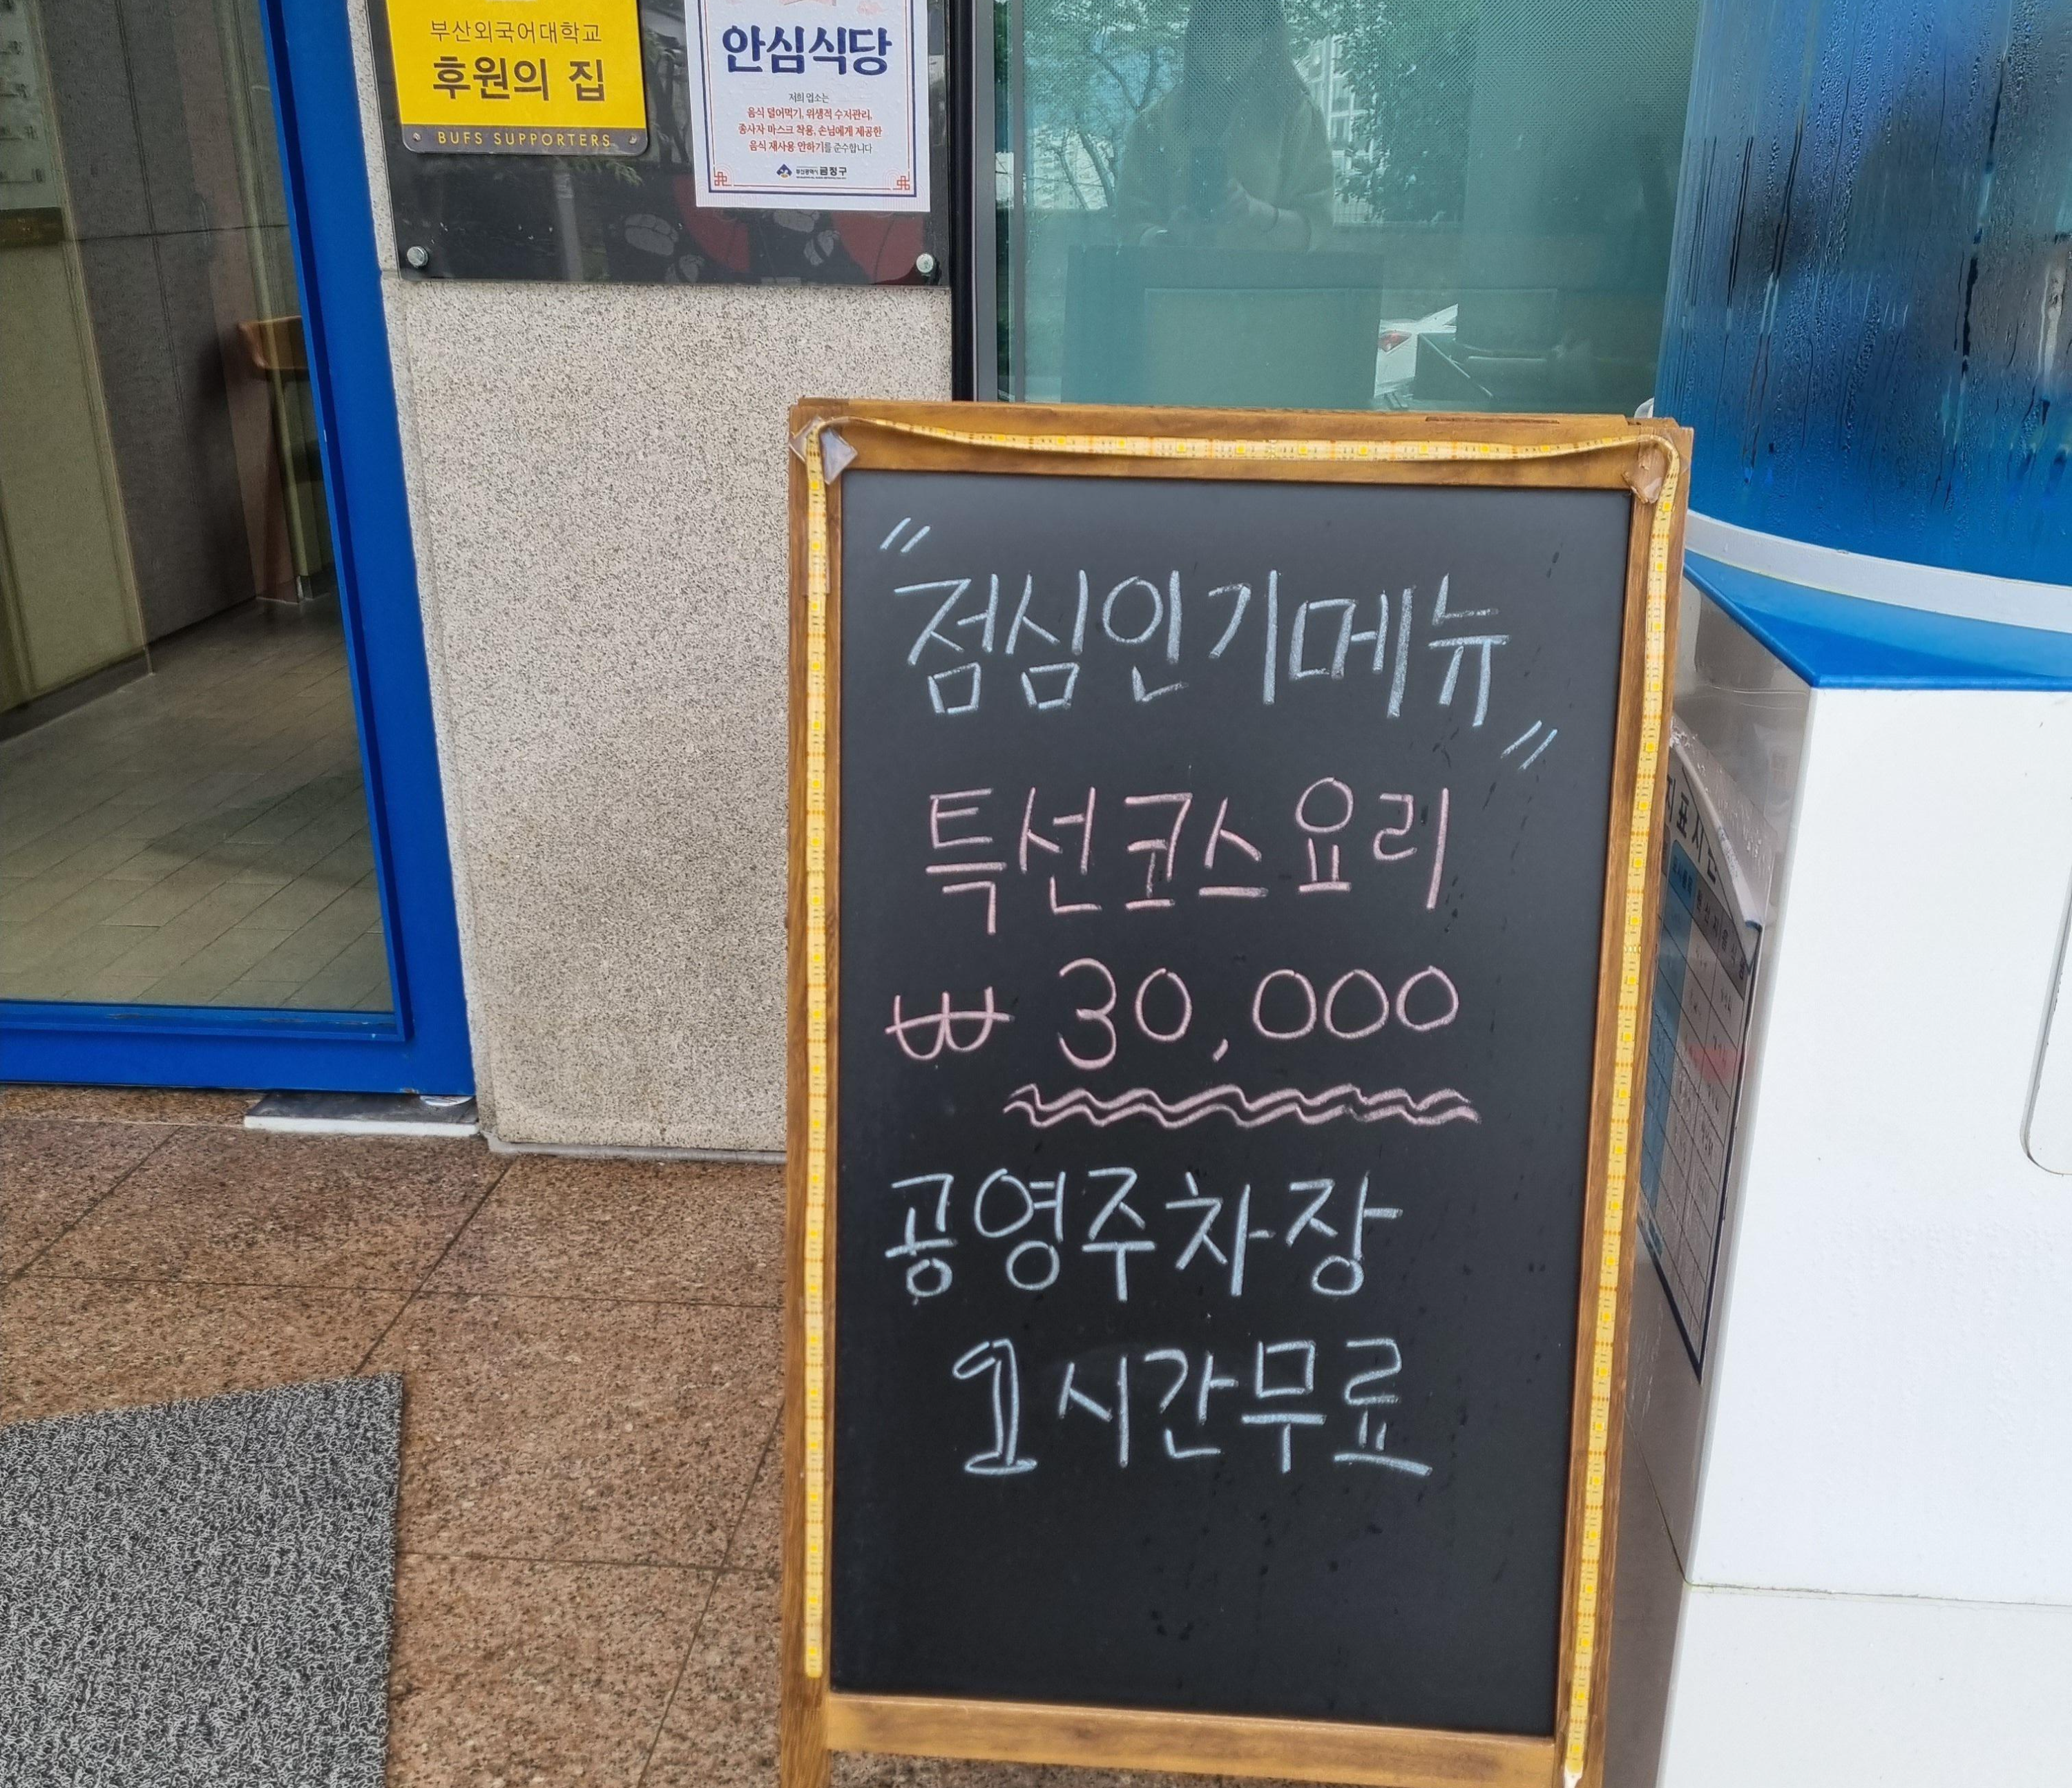 부산외국어대학교
후원의 집
BUFS SUPPORTERS
안심식당
저희 업소는
음식 덜어먹기, 위생적 수저관리,
종사자 마스크 착용, 손님에게 제공한
음식 재사용 안하기를 준수합니다
부산광역시 금정구
"점심인기메뉴"
특선코스요리
₩ 30,000
공영주차장
1시간무료